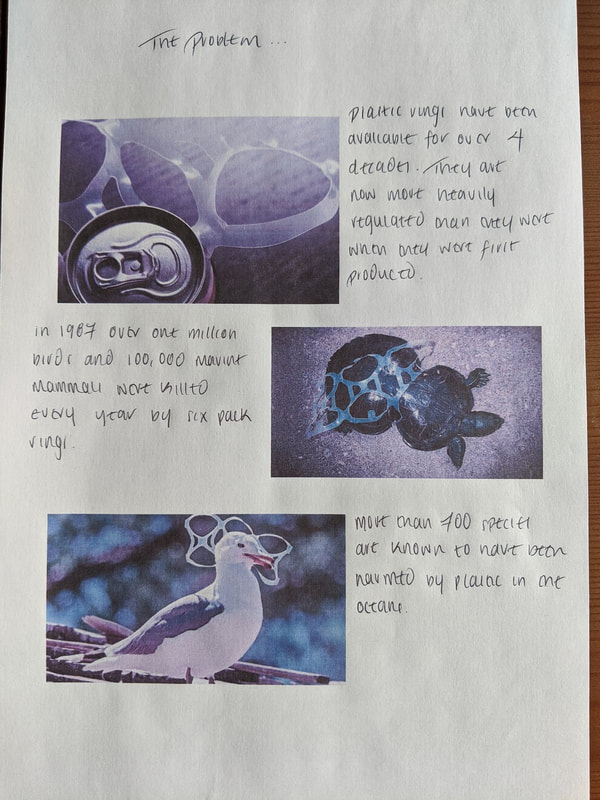 The Problem ...
Plastic rings have been
available for over 4
decades. They are
now more heavily
regulated than they were
when they were first
produced.
in 1987 over one million
birds and 100,000 marine
mammals were killed
every year by six pack
rings.
More than 700 species
are known to have been
harmed by plastic in the
oceans.